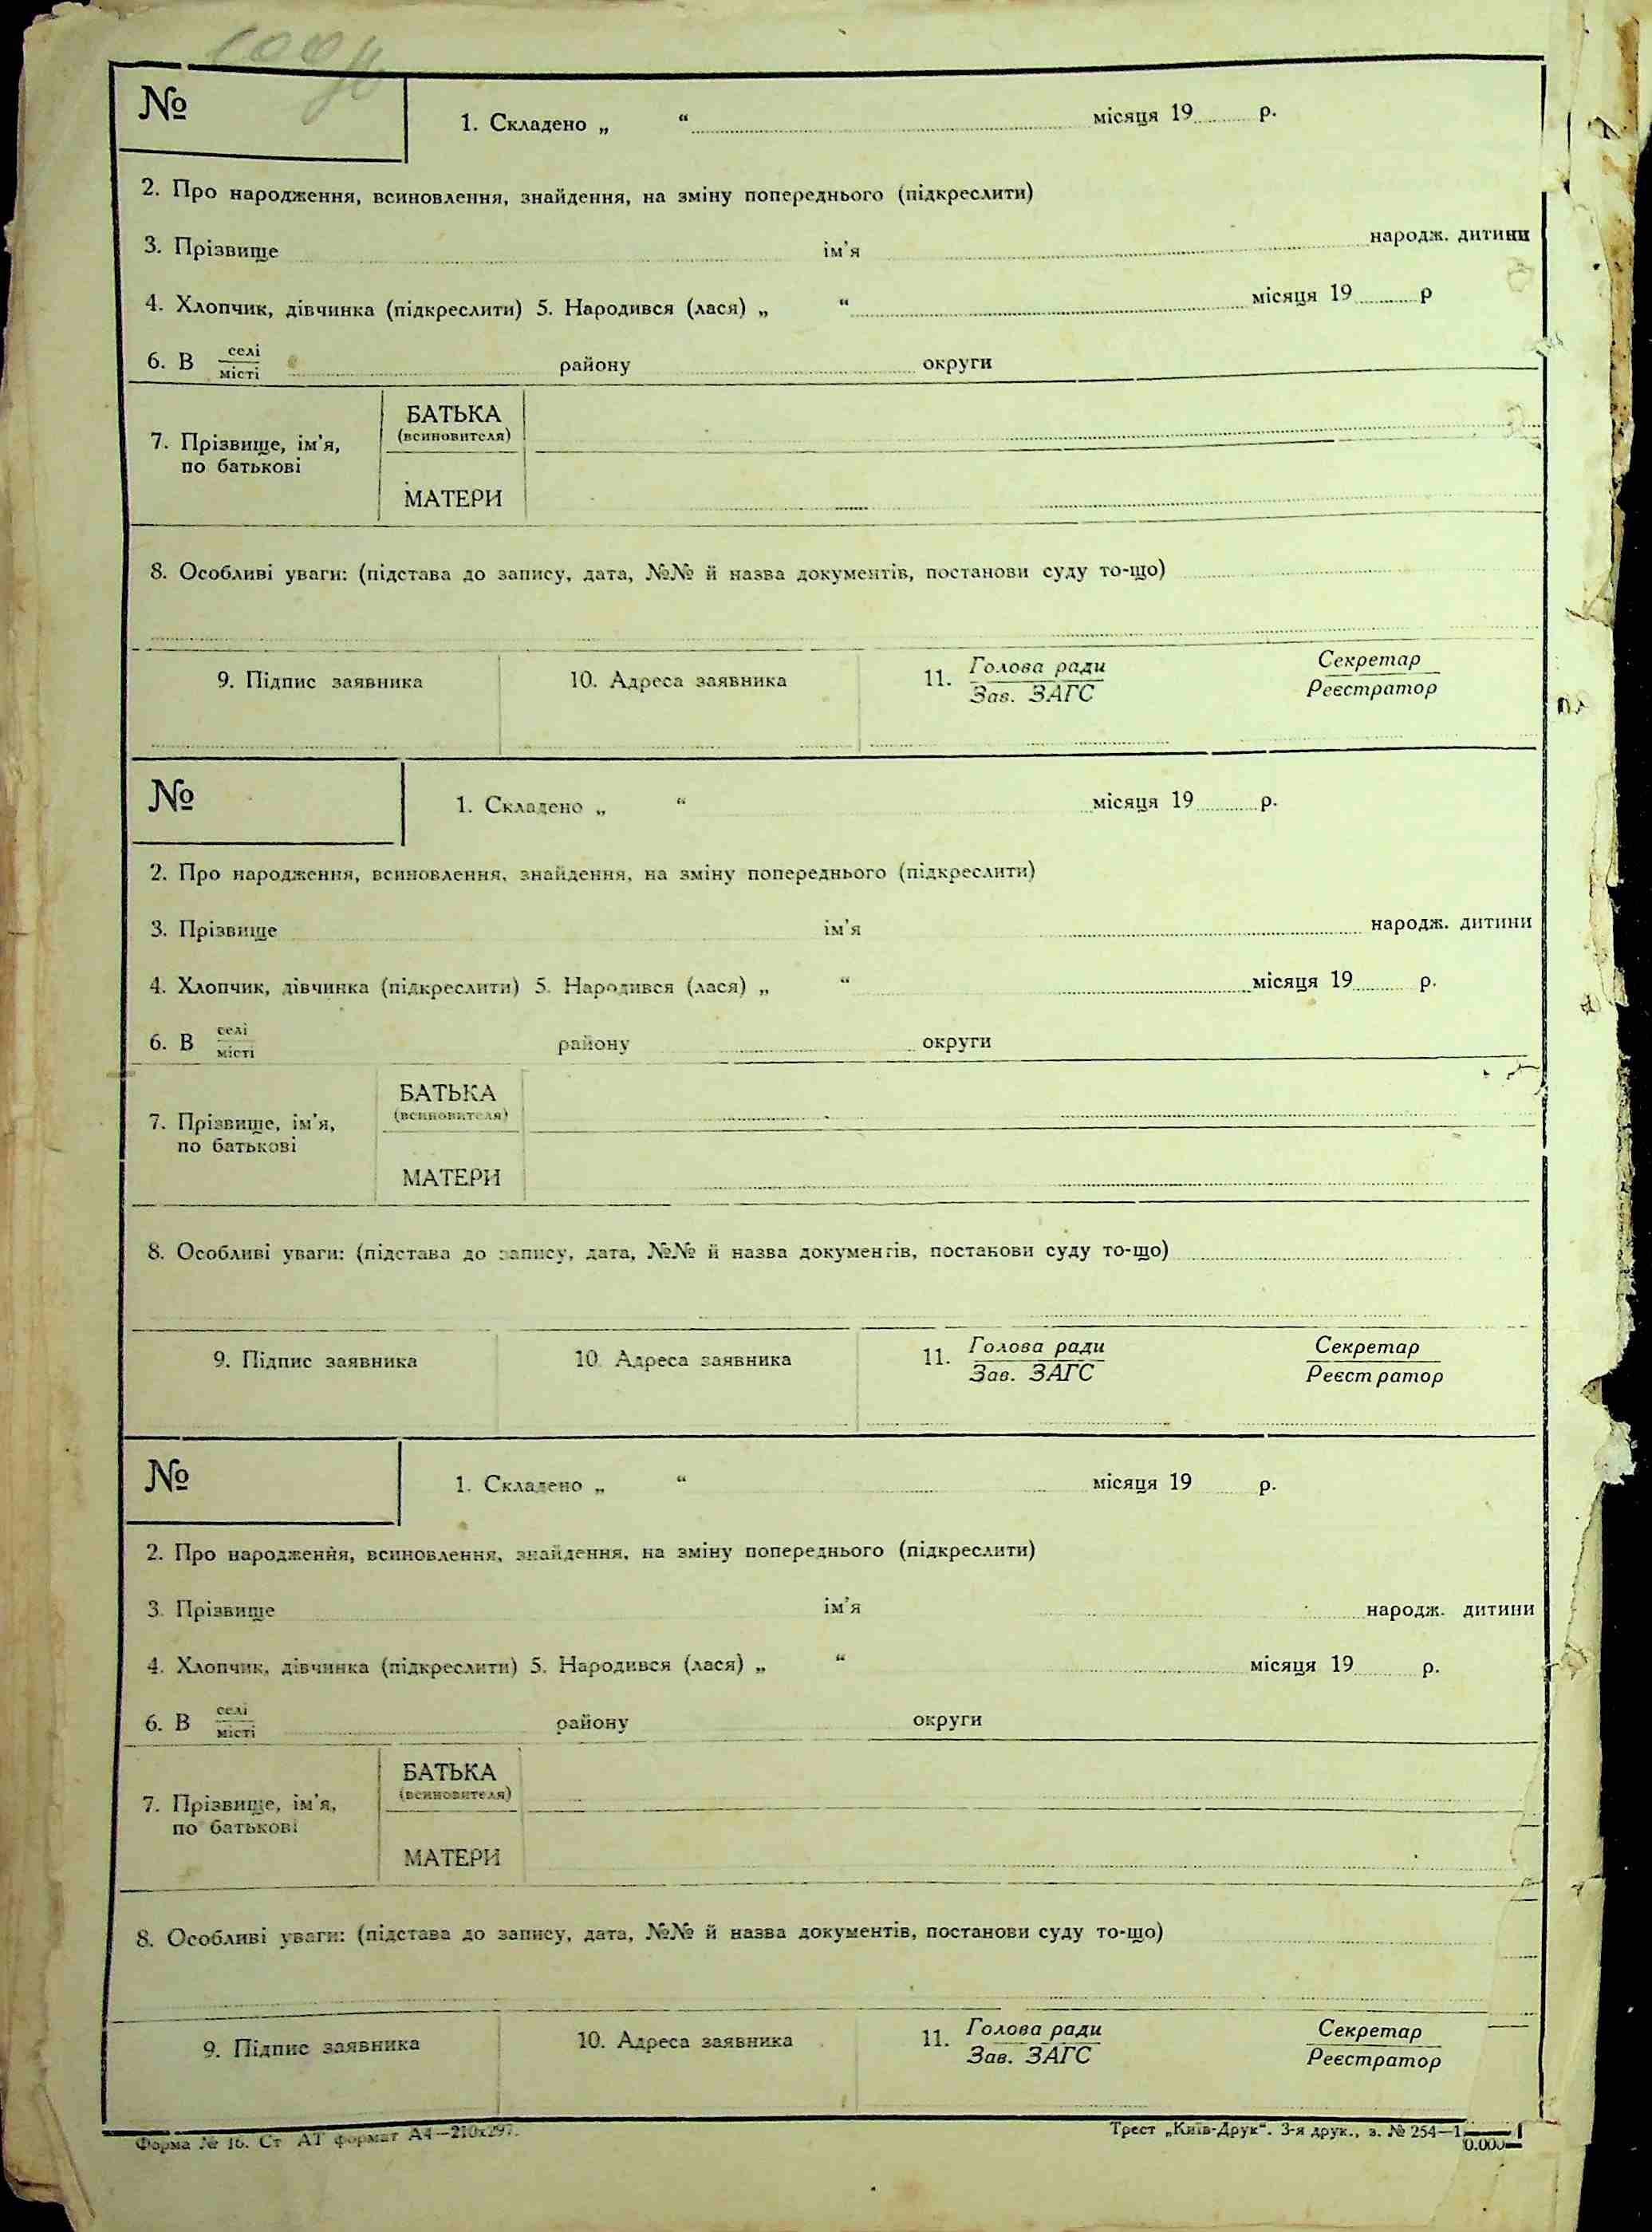 №
1. Складено „ “ місяця 19 р.
2. Про народження, всиновлення, знайдення, на зміну попереднього (підкреслити)
3. Прізвище ім’я народж. дитини
4. Хлопчик, дівчинка (підкреслити) 5. Народився (лася) „ “ місяця 19 р
6. В селі
місті району округи
7. Прізвище, ім’я,
по батькові
БАТЬКА
(всиновителя)
МАТЕРИ
8. Особливі уваги: (підстава до запису, дата, №№ й назва документів, постанови суду то-що)
9. Підпис заявника 10. Адреса заявника 11. Голова ради
Зав. ЗАГС
Секретар
Реєстратор
№
1. Складено „ “ місяця 19 р.
2. Про народження, всиновлення, знайдення, на зміну попереднього (підкреслити)
3. Прізвище ім’я народж. дитини
4. Хлопчик, дівчинка (підкреслити) 5. Народився (лася) „ “ місяця 19 р.
6. В селі
місті району округи
7. Прізвище, ім’я,
по батькові
БАТЬКА
(всиновителя)
МАТЕРИ
8. Особливі уваги: (підстава до запису, дата, №№ й назва документів, постанови суду то-що)
9. Підпис заявника 10. Адреса заявника 11. Голова ради
Зав. ЗАГС
Секретар
Реєстратор
№
1. Складено „ “ місяця 19 р.
2. Про народження, всиновлення, знайдення, на зміну попереднього (підкреслити)
3. Прізвище ім’я народж. дитини
4. Хлопчик, дівчинка (підкреслити) 5. Народився (лася) „ “ місяця 19 р.
6. В селі
місті району округи
7. Прізвище, ім’я,
по батькові
БАТЬКА
(всиновителя)
МАТЕРИ
8. Особливі уваги: (підстава до запису, дата, №№ й назва документів, постанови суду то-що)
9. Підпис заявника 10. Адреса заявника 11. Голова ради
Зав. ЗАГС
Секретар
Реєстратор
Форма № 16. Ст АТ формат А4—210х297. Трест „Київ-Друк“. 3-я друк., з. № 254—1
0.000